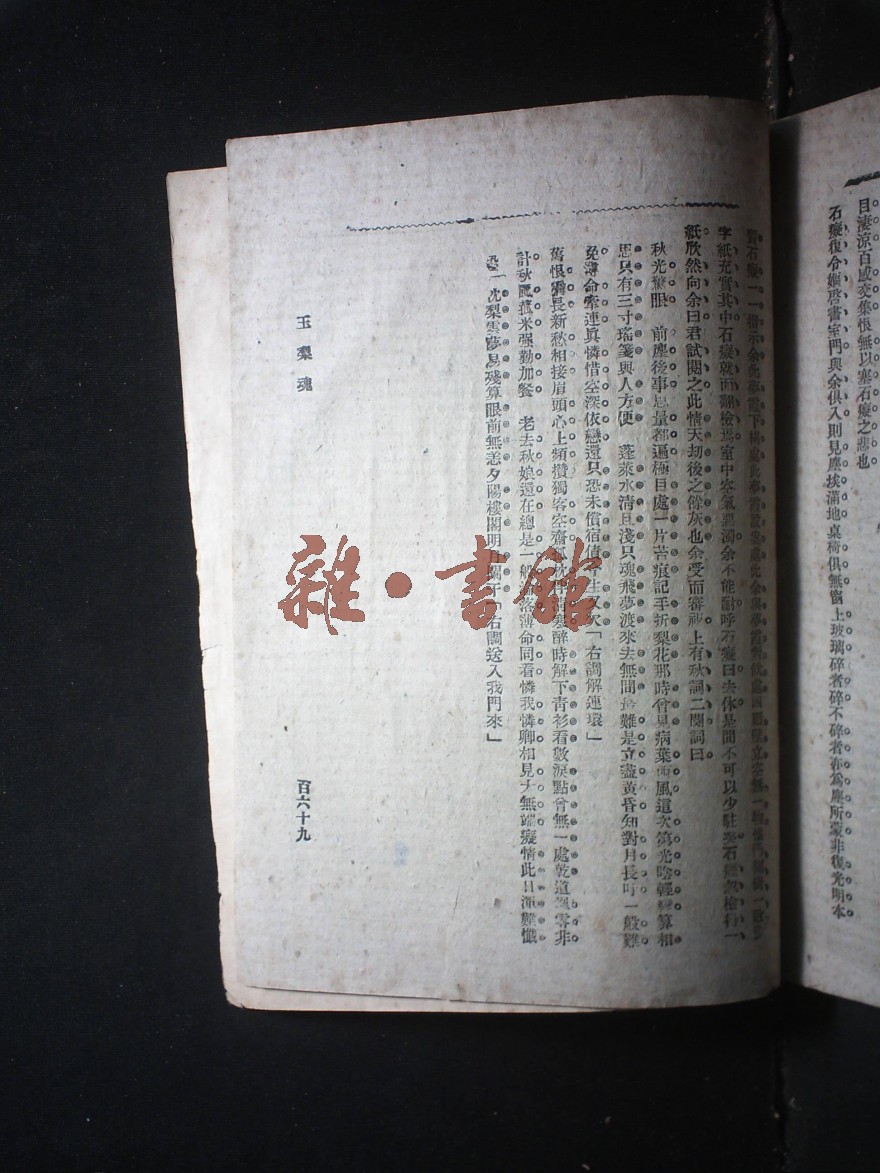 目淒涼百感交集恨無以塞石癡之悲也
石癡復令啓書室門與余俱入則見塵埃滿地桌椅俱無窗上玻璃碎者碎不碎者亦爲塵所蒙非復光明本
石癡一一指示余此夢霞下榻處此夢霞設案處此余與夢霞
字紙充實其中石癡就而翻檢焉室中空氣惡濁余不能耐呼石癡曰去休是間不可以少駐矣石癡檢得一
紙欣然向余曰君試閱之此情天劫後之餘灰也余受而審視上有秋詞二闋詞曰
秋光驚眼 前塵後事思量都遍極目處一片苔痕記手折梨花那時曾見病葉西風這次第光陰輕算相
思只有三寸瑤箋與人方便 蓬萊水清且淺只魂飛夢渡來去無間最難是立盡黃昏知對月長吁一般難
免薄命牽連眞憐惜空深依戀還只恐未償宿債今生又欠「右調解連環」
舊恨猶長新愁相接眉頭心上頻攢獨客空齋孤枕伴清寒醉時解下青衫看數淚點曾無一處乾道飄零非
計秋風菰米强勸加餐 老去秋娘還在總是一般淪落薄命同看憐我憐卿相見太無端癡情此日渾難懺
恐一枕梨雲夢易殘算眼前無恙夕陽樓閣明月闌干「右調送入我門來」
玉梨魂
百六十九
雜·書館